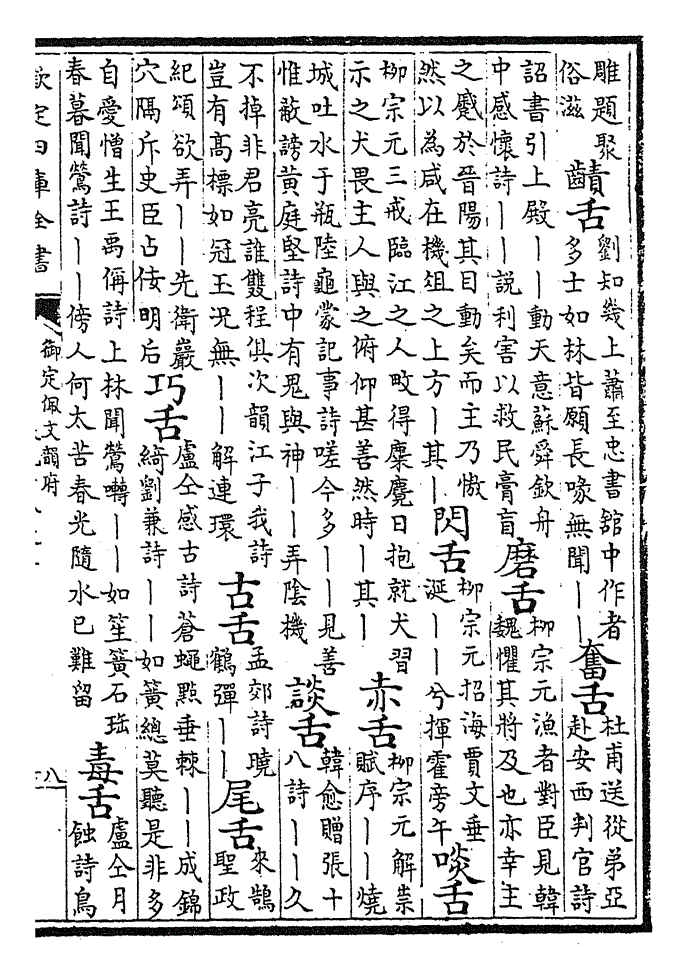 雕題聚
俗滋
䶦舌
劉知幾上蕭至忠書館中作者
多士如林皆願長喙無聞丨丨
奮舌
杜甫送從弟亞
赴安西判官詩
詔書引上殿丨丨動天意蘇舜欽舟
中感懷詩丨丨説利害以救民膏肓
磨舌
柳宗元漁者對臣見韓
魏懼其將及也亦幸主
之蹙於晉陽其目動矣而主乃慠
然以為咸在機俎之上方丨其丨
閃舌
柳宗元招海賈文垂
涎丨丨兮揮霍旁午
啖舌
柳宗元三戒臨江之人畋得麋麑日抱就犬習
示之犬畏主人與之俯仰甚善然時丨其丨
赤舌
柳宗元解祟
賦序丨丨燒
城吐水于瓶陸龜蒙記事詩嗟今多丨丨見善
惟敢謗黃庭堅詩中有鬼與神丨丨弄陰機
談舌
韓愈贈張十
八詩丨丨久
不掉非君亮誰雙程俱次韻江子我詩
豈有高標如冠玉況無丨丨解連環
古舌
孟郊詩曉
鶴彈丨丨
尾舌
來鵠
聖政
紀頌欲弄丨丨先衛巖
穴隔斥史臣占侒明后
巧舌
盧仝感古詩蒼蠅點垂棘丨丨成錦
綺劉兼詩丨丨如簧總莫聽是非多
自愛憎生王禹偁詩上林聞鶯囀丨丨如笙簧石珤
春暮聞鶯詩丨丨傍人何太苦春光隨水已難留
毒舌
盧仝月
蝕詩鳥
欽定四庫全書
御定佩文韻府